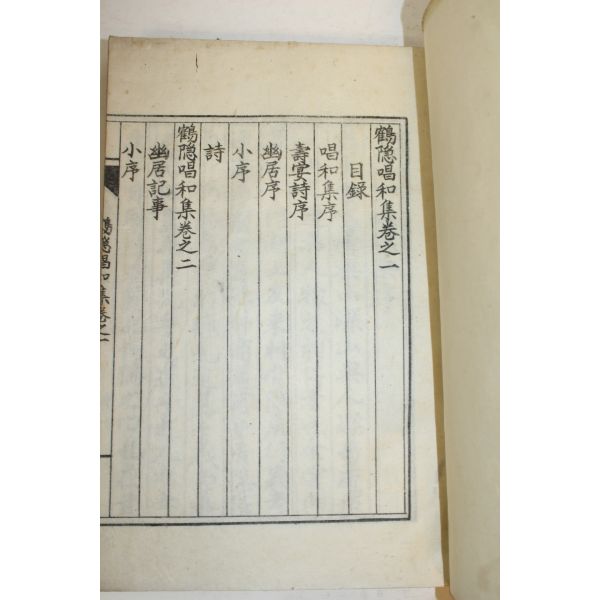 鶴隱唱和集卷之一
目錄
唱和集序
壽宴詩序
幽居序
小序
詩
鶴隱唱和集卷之二
幽居記事
小序
鶴隱唱和集卷之一